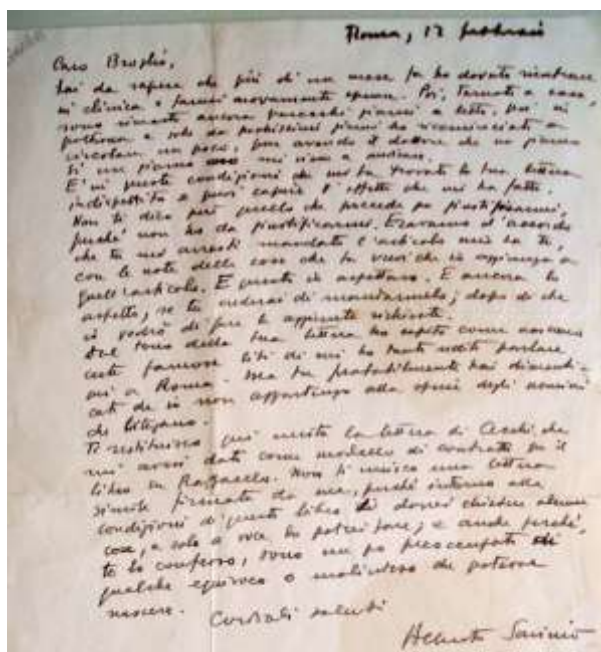 Roma, 12 febbraio
Caro Broglio,
hai da sapere che più di un mese fa ho dovuto rientrare
in clinica e farmi nuovamente operare. Poi, tornato a casa,
sono rimasto ancora parecchi giorni a letto, poi in
poltrona e solo da pochissimi giorni ho ricominciato a
circolare un poco, pur avendo il dottore che un giorno
sì un giorno no mi viene a
E in queste condizioni che mi ha trovato la tua lettera
indispettita e puoi capire l'effetto che mi ha fatto.
Non ti dico più quello che precede per giustificarmi,
perché non ho da giustificarmi. Eravamo d'accordo
che tu mi avresti mandato l'articolo mio su te,
con le note delle cose che tu vuoi che io aggiunga a
quell'articolo. E questo io aspettavo. E ancora lo
aspetto, se tu crederai di mandarmelo; dopo di che
io vedrò di fare le aggiunte richieste.
Dal tono della tua lettera ho capito come nascono
certe famose liti di cui ho tanto udito parlare
qui a Roma. Ma tu probabilmente hai dimenti-
cato che io non appartengo alla specie degli uomini
che litigano.
Ti restituisco qui unita la lettera di Cecchi, che
mi avevi dato come modello di contratto per il
libro su Raffaello. Non ti unisco una lettera
simile firmata da me, perché intorno alle
condizioni di questo libro ti dovrei chiedere alcune
cose, e solo a voce lo potrei fare; e anche perché,
te lo confesso, sono un po preoccupato di
qualche equivoco o malinteso che potesse
nascere.
Cordiali saluti
Alberto Savinio